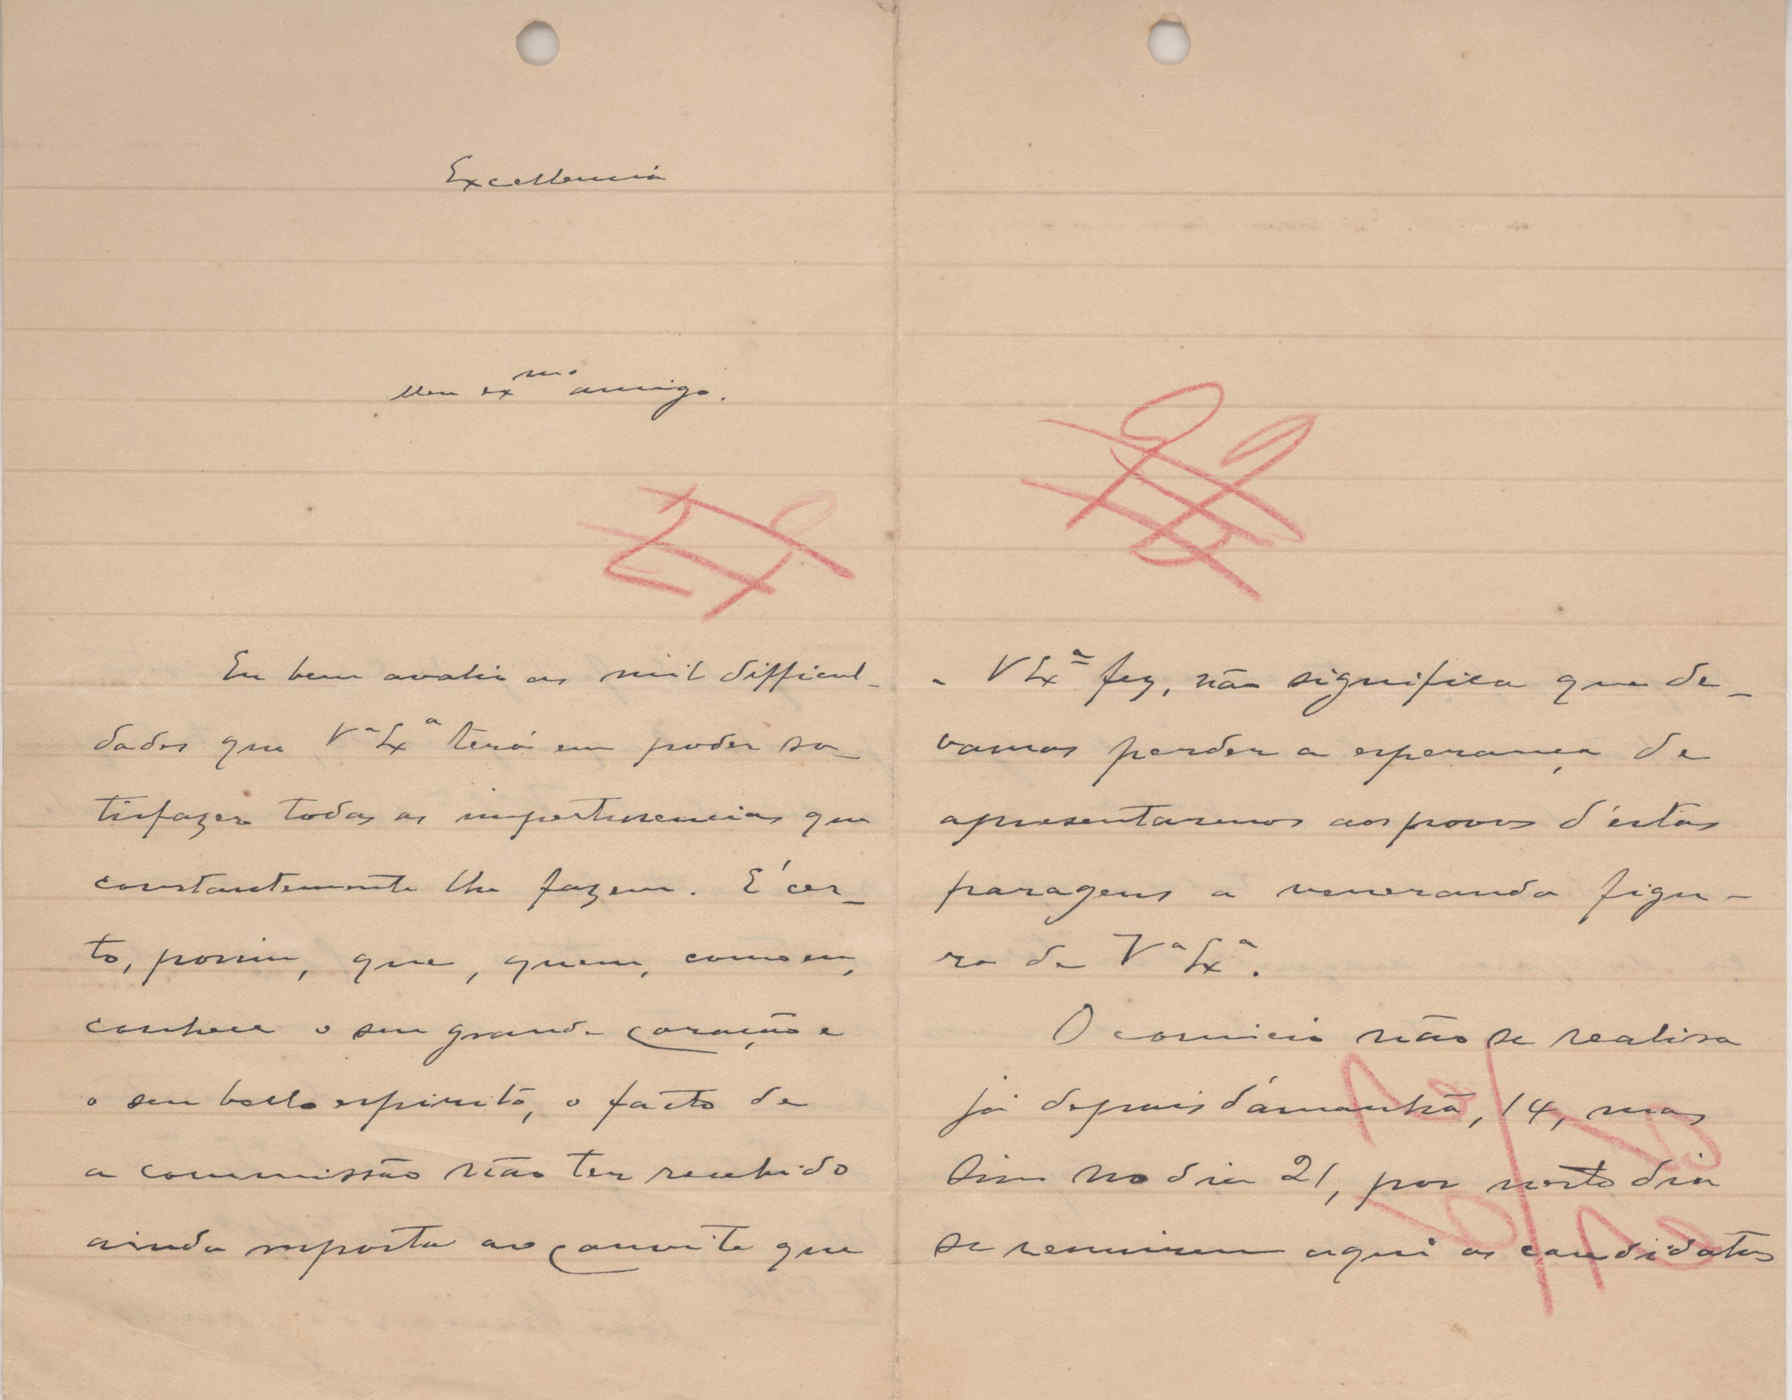 Excellencia
Meu ex.mo amigo.
Eu bem avalio as mil difficul-
dades que V.a Ex.a terá em poder sa-
tisfazer todas as impertinencias que
constantemente lhe fazem. É cer-
to, porém, que, quem, como eu,
conhece o seu grande coração e
o seu bello espirito, o facto de
a commissão não ter recebido
ainda resposta ao convite que
a V Ex.a fez, não significa que de-
vamos perder a esperança de
apresentarmos aos povos d'estas
paragens a veneranda figu-
ra de V.a Ex.a.
O comicio não se realisa
já depois d'ámanhã, 14, mas
sim no dia 21, por n'esto dia
se reunirem aqui os candidatos